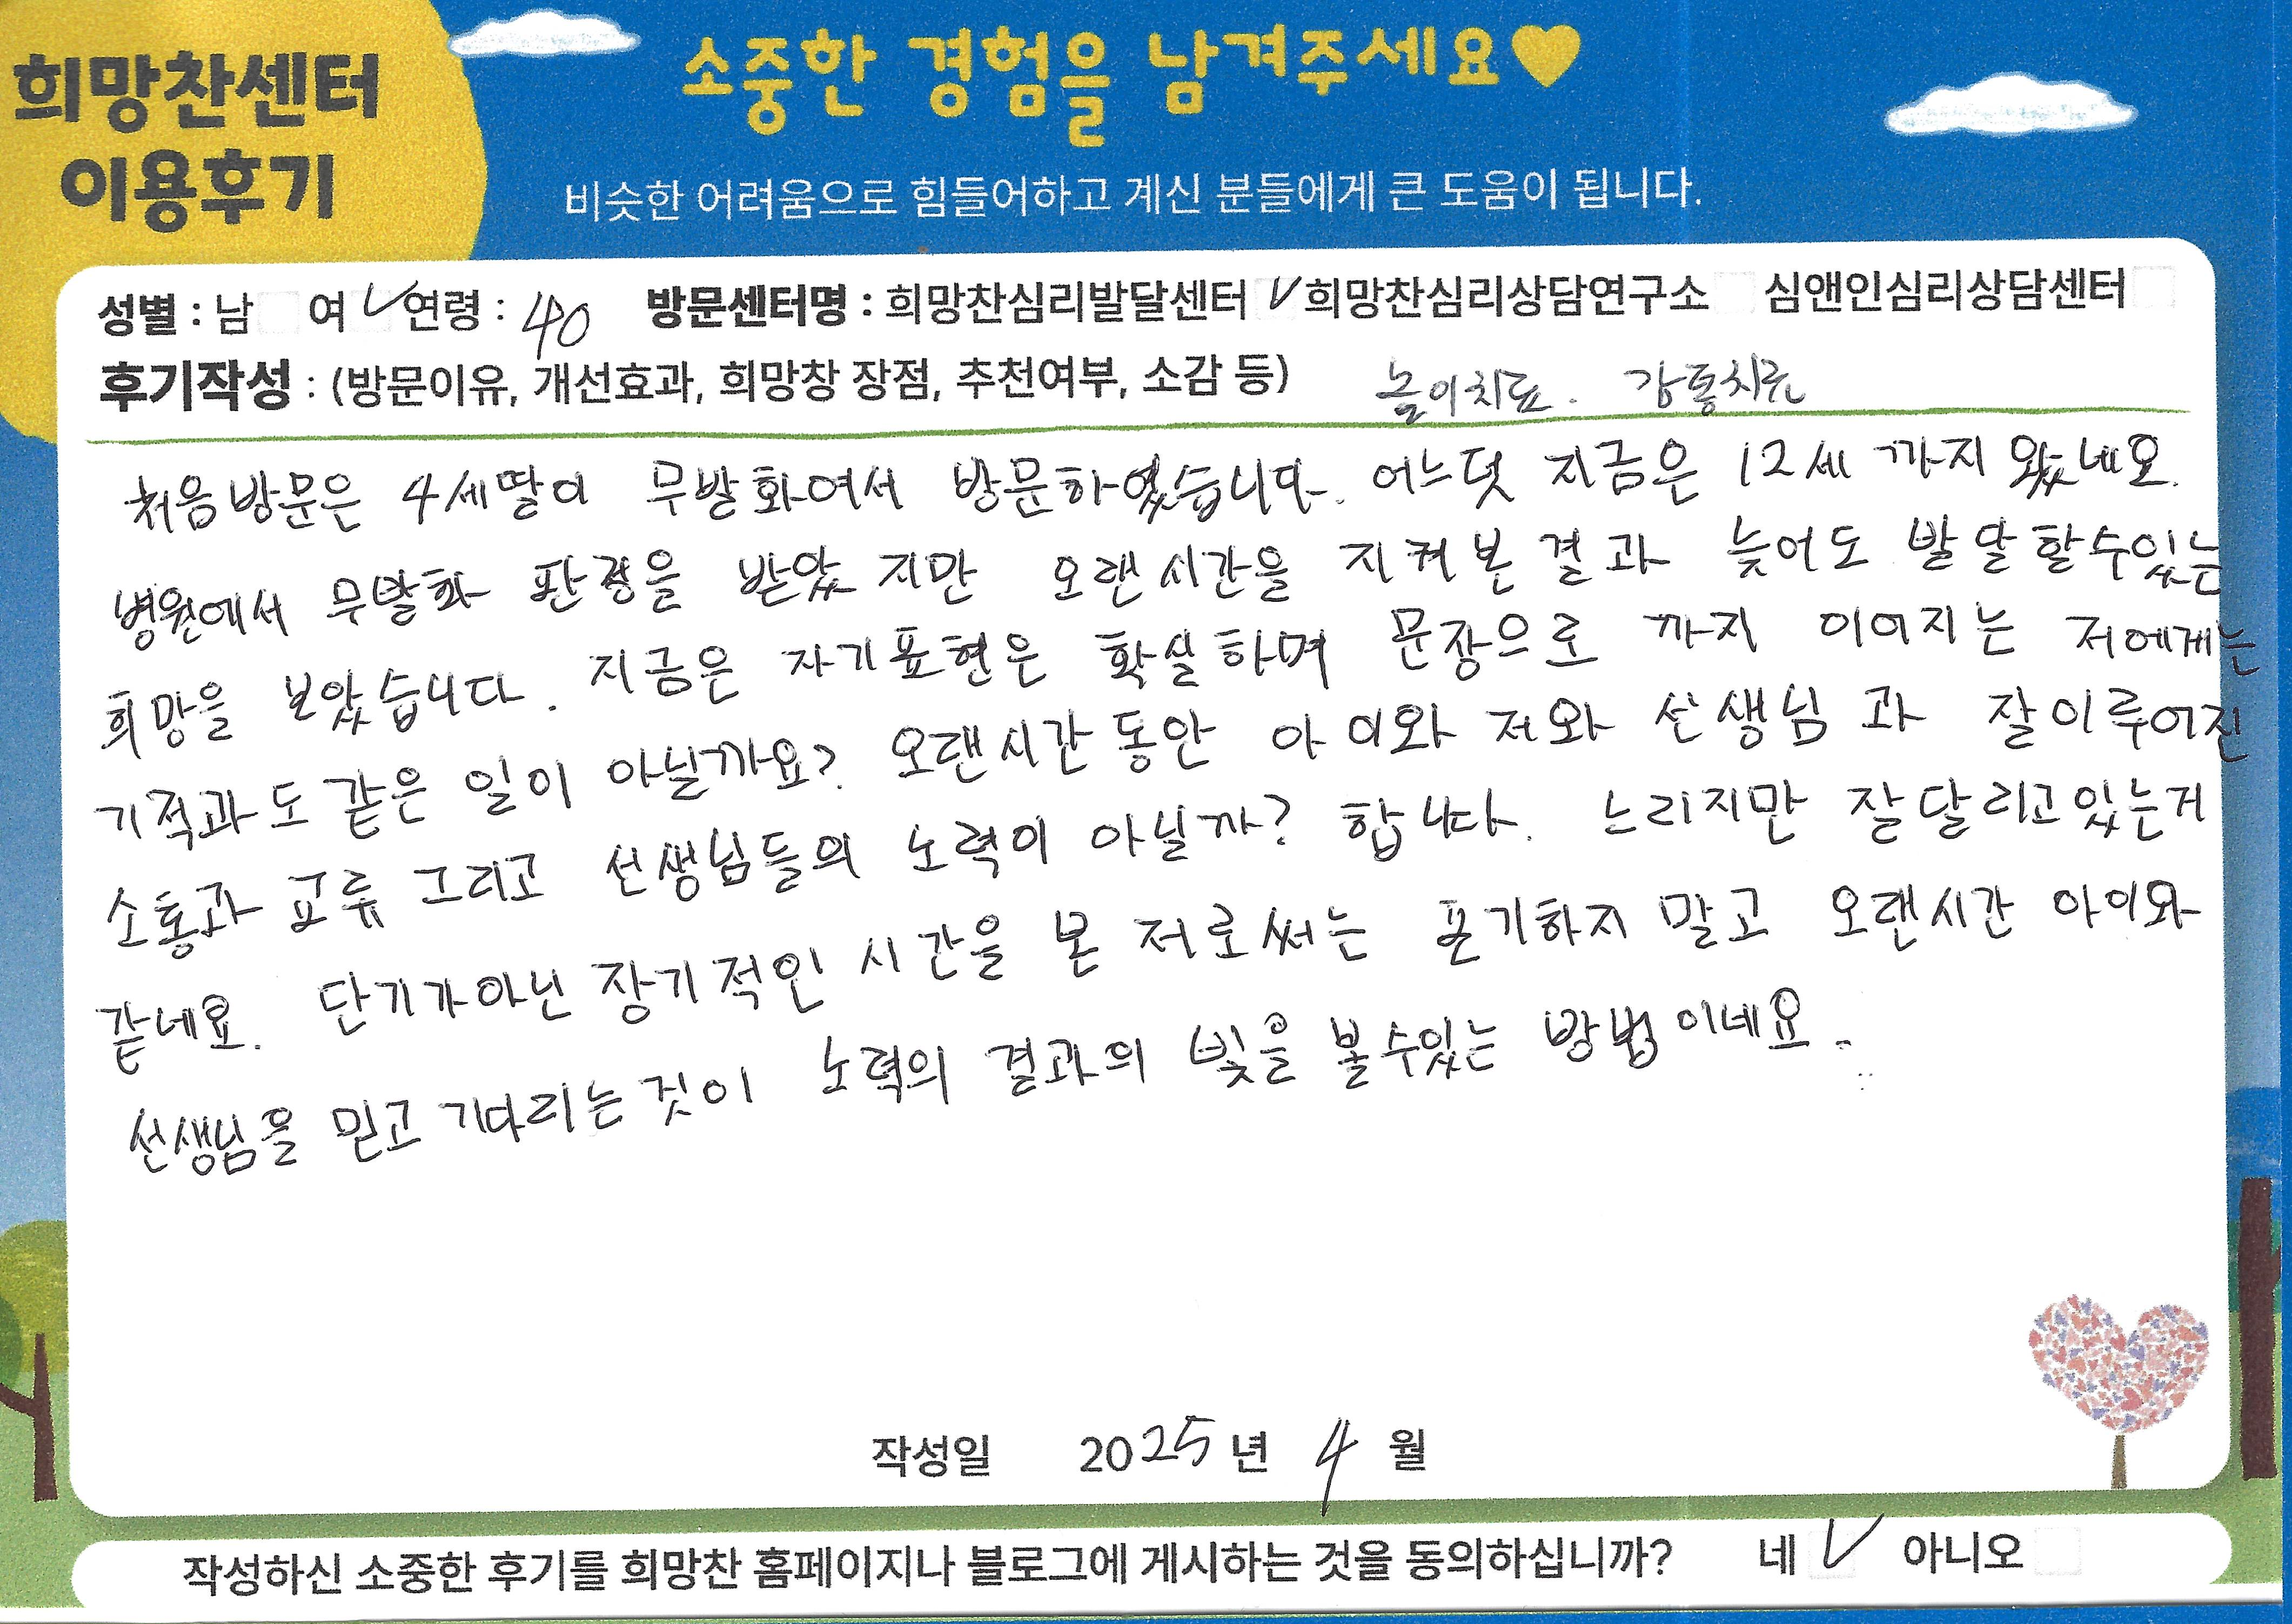 희망찬센터
이용후기
소중한 경험을 남겨주세요♥
비슷한 어려움으로 힘들어하고 계신 분들에게 큰 도움이 됩니다.
성별 : 남 여 ✓ 연령 : 40 방문센터명 : 희망찬심리발달센터 ✓ 희망찬심리상담연구소 심앤인심리상담센터
후기작성 : (방문이유, 개선효과, 희망창 장점, 추천여부, 소감 등) 놀이치료. 감통치료
처음방문은 4세딸이 무발화여서 방문하였습니다. 어느덧 지금은 12세 까지 왔네요.
병원에서 무발화 판정을 받았 지만 오랜시간을 지켜본결과 늦어도 발달할수있는
희망을 보았습니다. 지금은 자기표현은 확실하며 문장으로 까지 이어지는 저에게는
기적과도 같은 일이 아닐까요? 오랜시간동안 아이와 저와 선생님 과 잘이루어진
소통과 교류 그리고 선생님들의 노력이 아닐까? 합니다. 느리지만 잘달리고있는거
같네요. 단기가아닌 장기적인 시간을 본 저로써는 포기하지 말고 오랜시간 아이와
선생님을 믿고 기다리는것이 노력의 결과의 빛을 볼수있는 방법이네요.
작성일 2025년 4 월
작성하신 소중한 후기를 희망찬 홈페이지나 블로그에 게시하는 것을 동의하십니까? 네 ✓ 아니오